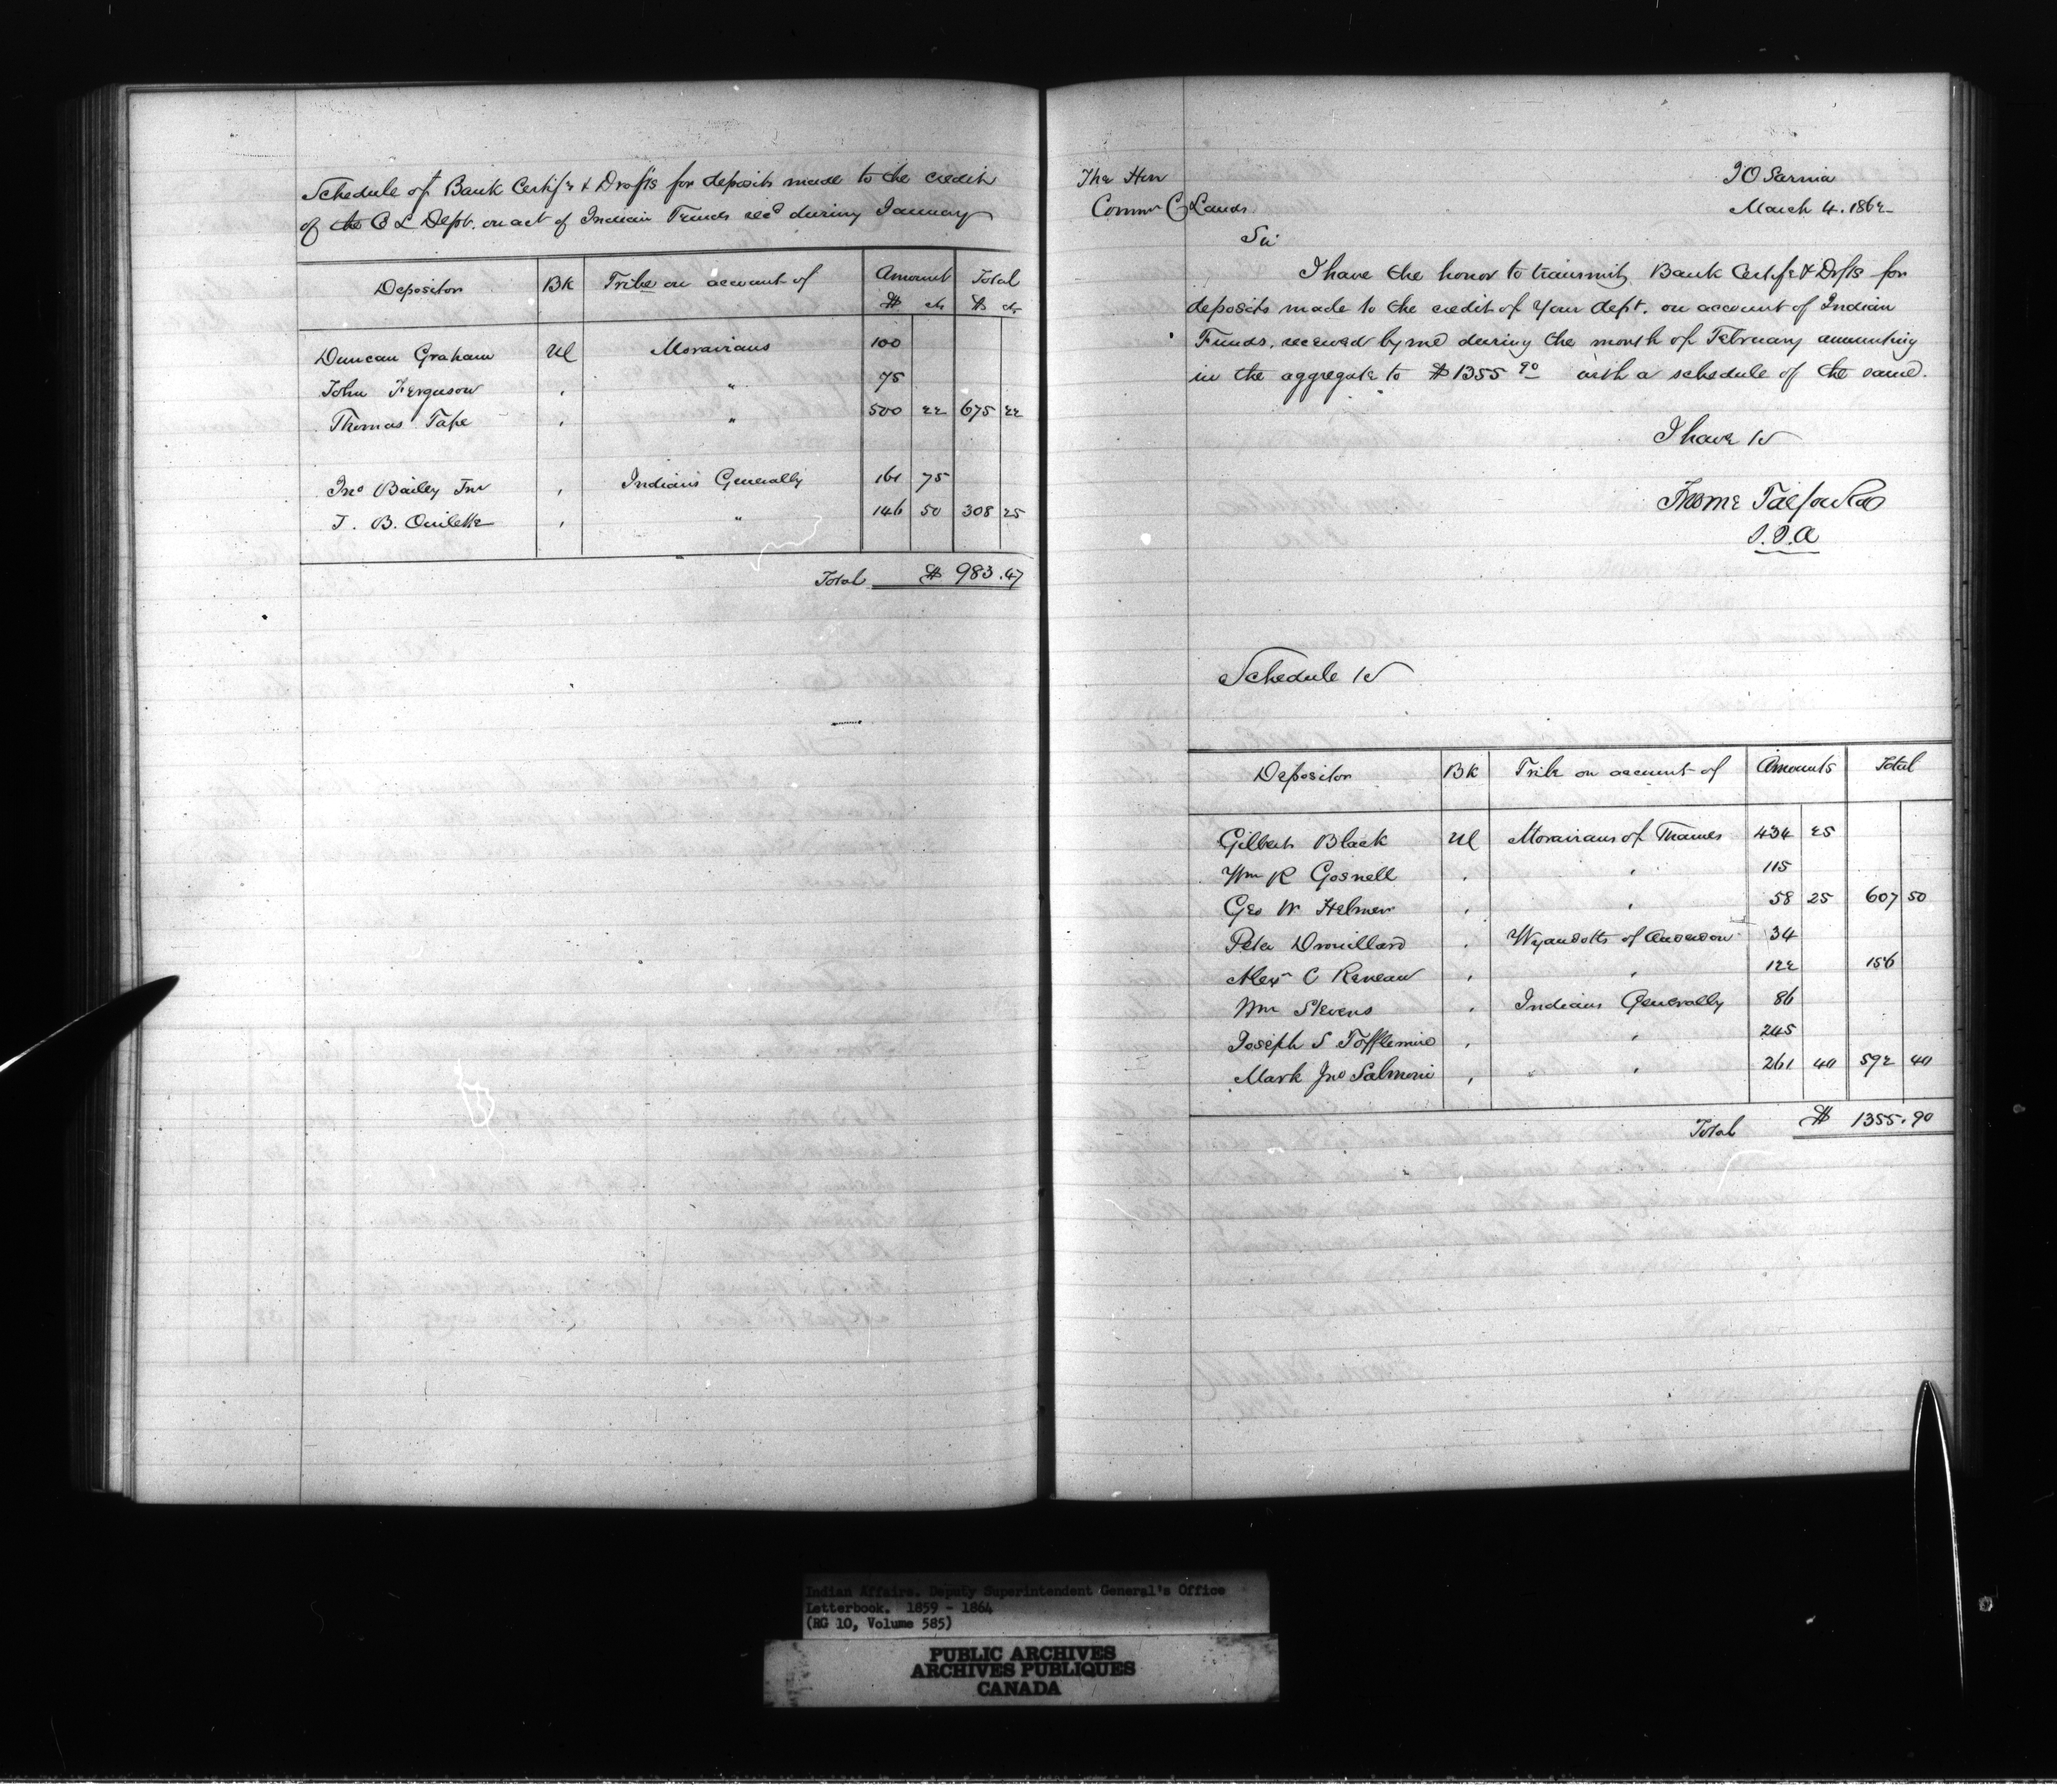 Schedule of Bank Certifs & Drafts for deposits made to the credit
of the C L Dept. on act of Indian Funds recd during January
Depositor Bk Tribe on account of Amount Total
$ cts $ cts
Duncan Graham UC Moravians 100
John Ferguson , " 75
Thomas Tape , " 500 22 675 22
Jno Bailey Jnr , Indians Generally 161 75
J. B. Ouilette , " 146 50 308 25
Total $ 983.47
The Hon
Commr C Lands
I O Sarnia
March 4. 1862
Sir
I have the honor to transmit Bank Certifs & Drfts for
deposits made to the credit of your dept. on account of Indian
Funds, received by me during the month of February amounting
in the aggregate to $ 1355 90 with a schedule of the same.
I have &c
Froome Talfourd
V.S.I.A
Schedule &c
Depositor Bk Tribe on account of Amounts Total
Gilbert Black UC Moravians of Thames 434 25
Wm R Gosnell , , 115
Geo W Helmer , , 58 25 607 50
Peter Drouillard , Wyandotts of Anderdon 34
Alexr C Reneau , , 122 156
Wm Stevens , Indians Generally 86
Joseph S Tofflemire , , 245
Mark Jno Salmoni , " , 261 40 592 40
Total $ 1355.90
Indian Affairs. Deputy Superintendent General's Office
Letterbook. 1859 - 1864
(RG 10, Volume 585)
PUBLIC ARCHIVES
ARCHIVES PUBLIQUES
CANADA